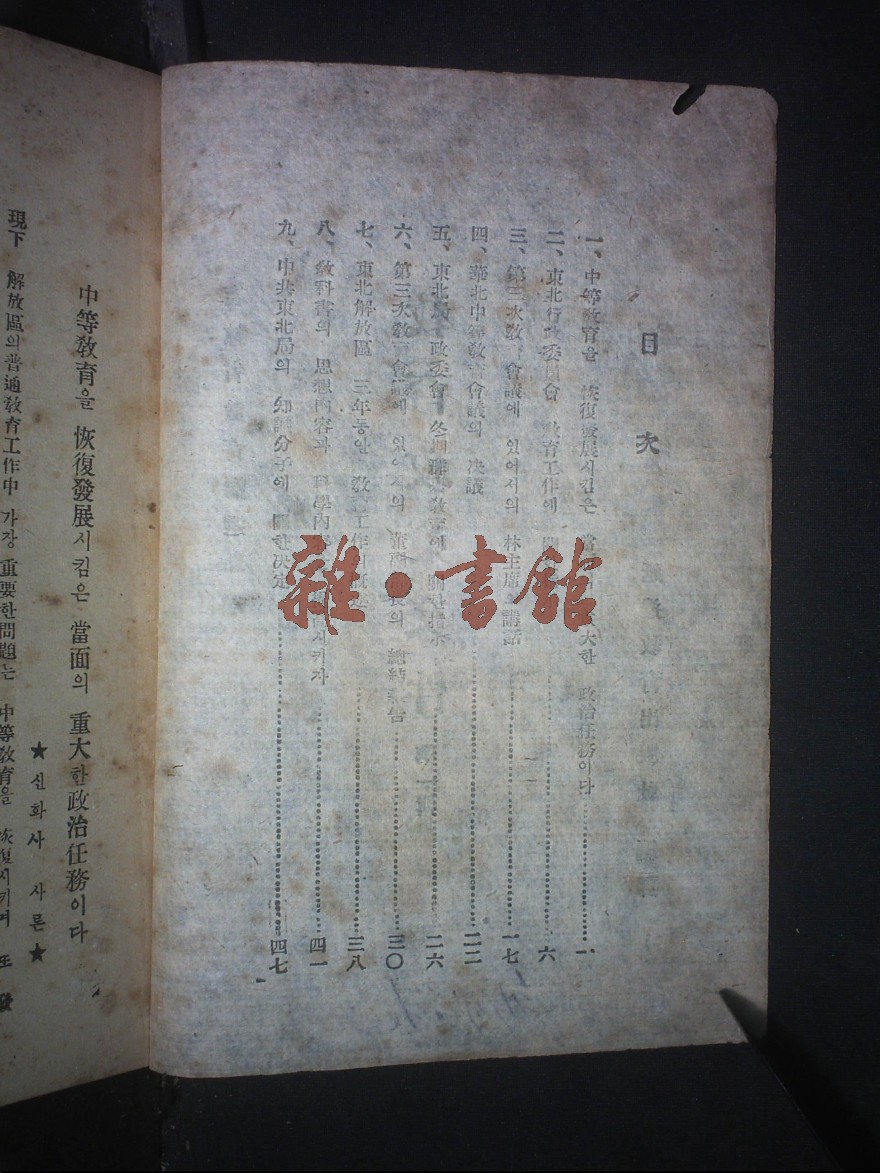 目次
一、中等敎育을 恢復發展시킴은 當面의 重大한 政治任務이다 一
二、東北行政委員會 敎育工作에 六
三、第三次敎育會議에 있어서의 林主席 講話 一七
四、華北中等敎育會議의 決議 二二
五、東北局 政委會 冬 敎育에 關한指示 二六
六、第三次敎育會議에 있어서의 董 部長의 總結報告 三〇
七、東北解放區 三年동안 敎育工作의槪 三八
八、敎科書의 思想內容과 科學內 시키자 四一
九、中共東北局의 知識分子에 關한決定 四七
雜·書館
中等敎育을 恢復發展시킴은 當面의 重大한政治任務이다
★신화사 사론★
現下 解放區의普通敎育工作中 가장 重要한問題는 中等敎育을 恢復시키며 또 發